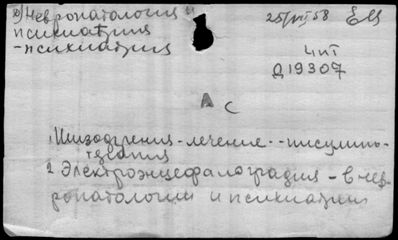 Невропатология и
психиатрия
-психиатрия
25/VII 58
чит
Д19307
А с
1. Шизофрения - лечение - инсулино-
терапия
2 Электроэнцефалография - в нев
ропатологии и психиатрии